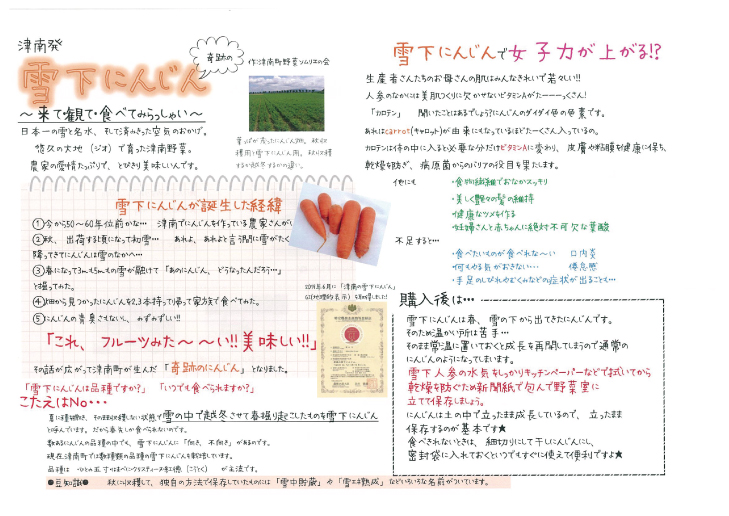 津南発
雪下にんじん
奇跡の
作:津南町野菜ソムリエの会
～来て・観て・食べてみらっしゃい～
日本一の雪と名水、そして済みきった空気のおかげ。
悠久の大地（ジオ）で育った津南野菜。
農家の愛情たっぷりで、とびきり美味しいんです。
雪下にんじんが誕生した経緯
①今から50～60年位前かな… 津南でにんじんを作っている農家さんがい
②秋、出荷する頃になって初雪… あれよ、あれよと言う間に雪がたく
降ってきてにんじんは雪のなかへ…
③春になって3mも5mもの雪が融けて「あのにんじん、どうなったんだろう…」
と掘ってみた。
④畑から見つかったにんじんを2,3本持って帰って家族で食べてみた。
⑤にんじんの青臭さもないし、みずみずしい!!
「これ、フルーツみた～～い!!美味しい!!」
その話が広がって津南町が生んだ「奇跡のにんじん」となりました。
2019年6月に「津南の雪下にんじん」
GI(地理的表示)を取得しました!
「雪下にんじんは品種ですか?」「いつでも食べられますか?」
こたえはNo…
夏に種を蒔き、そのまま収穫しない状態で雪の中で越冬させて春掘り起こしたものを雪下にんじん
と呼んでいます。だから春先しか食べられないのです。
数あるにんじんの品種の中でも、雪下にんじんに「向き、不向き」があるのです。
現在津南町では数種類の品種の雪下にんじんを栽培しています。
品種は ひとみ五寸・はまべに・クリスティーヌ・紅徳（こうとく） が主流です。
●豆知識● 秋に収穫して、独自の方法で保存していたものには「雪中貯蔵」や「雪室熟成」などいろいろな名前がついています。
雪下にんじんで女子力が上がる!?
生産者さんたちのお母さんの肌はみんなきれいで若々しい!!
人参のなかには美肌つくりに欠かせないビタミンAがたーーーっくさん!
「カロテン」 聞いたことはあるでしょう?にんじんのダイダイ色の色素です。
あれはcarrot(キャロット)が由来にもなっているほどたーくさん入っているの。
カロテンは体の中に入ると必要な分だけビタミンAに変わり、皮膚や粘膜を健康に保ち、
乾燥を防ぎ、病原菌からのバリアの役目を果たします。
他にも
・食物繊維でおなかスッキリ
・美しく艶々の髪の維持
・健康なツメを作る
・妊婦さんと赤ちゃんに絶対不可欠な葉酸
不足すると…
・食べたいものが食べれな～い 口内炎
・何もやる気がおきない… 倦怠感
・手足のしびれやむくみなどの症状が出ることも…
購入後は…
雪下にんじんは春、雪の下から出てきたにんじんです。
そのため温かい所は苦手…
そのまま常温に置いておくと成長を再開してしまうので通常の
にんじんのようになってしまいます。
雪下人参の水気をしっかりキッチンペーパーなどで拭いてから
乾燥を防ぐため新聞紙で包んで野菜室に
立てて保存しましょう。
にんじんは土の中で立ったまま成長しているので、立ったまま
保存するのが基本です★
食べきれないときは、細切りにして干しにんじんにし、
密封袋に入れておくといつでもすぐに使えて便利ですよ★